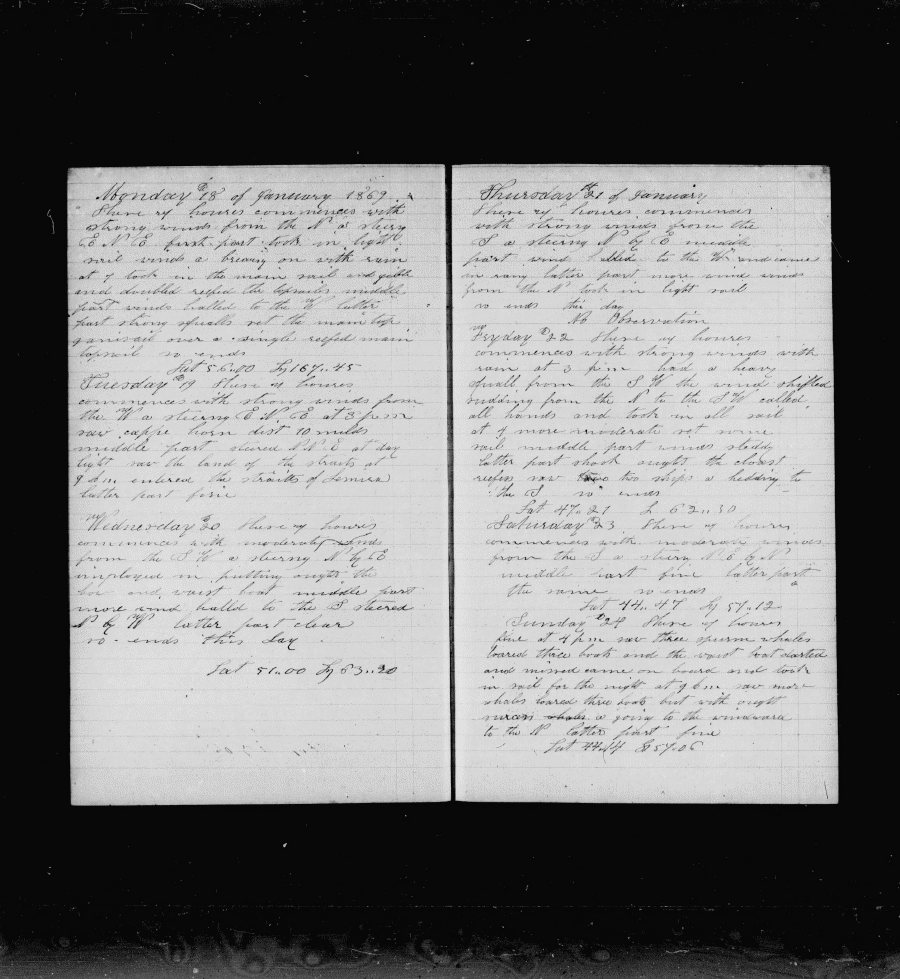 Monday 18 of January 1869
These 24 houres commences with
strong winds from the N a steering
E N E first part took in light
sail winds a brezing on with rain
at 7 took in the main sail and gibb
and doubled reefed the topsails middle
part winds halled to the W latter
part strong squalls set the main top
gansail over a single reefed main
topsail so ends
Lat 56.00 Lg 167..45
Tuesday 19 These 24 houres
commences with strong winds from
the W a steering E N E at 3 p m
saw cappe horn dist 10 miles
middle part steered N E at day
light saw the land of the straits at
9 a m entered the straits of Lemira
latter part fine
Wednesday 20 these 24 houres
commences with moderate winds
from the S W a steering N by E
imployed in putting ought the
bow and waist boat middle part
more wind halled to the S steered
N by W latter part clear
so ends this day
Lat 51.00 Lg 63..20
Thursday 21 of January
These 24 houres commences
with strong winds from the
S a steering N by E middle
part wind halled to the W and came
in rany latter part more wind winds
from the N took in light sail
so ends this day
No Observation
Fryday 22 These 24 houres
commences with strong winds with
rain at 3 p m had a heavy
squall from the S W the wind shifted
sudding from the N to the S W called
all hands and took in all sail
at 4 more moderate set some
sail middle part winds steddy
latter part shook ought the closst
reefess saw two too ships a hedding to
the S so ends
Lat 47.21 L 62..30
Saturday 23 These 24 houres
commences with moderate winds
from the S a steering N E by N
middle part fine latter part
the same so ends
Lat 44..47 Lg 57..12
Sunday 24 These 24 houres
fine at 4 p m saw three sperm whales
loared three boats and the waist boat darted
and missed came on board and took
in sail for the night at 9 a m saw more
whales loared three boats but with ought
surcess whales a going to the windward
to the N latter part fine
Lat 44.14 Lg 57.06